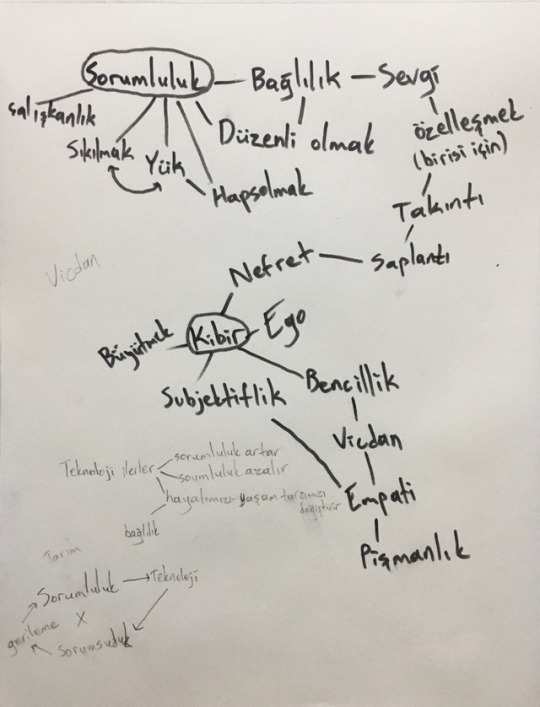 Sorumluluk
Bağlılık
Sevgi
Çalışkanlık
Düzenli olmak
özelleşmek
(birisi için)
Sıkılmak
Yük
Hapsolmak
Takıntı
Saplantı
Nefret
Vicdan
Kibir
Ego
Büyütmek
Bencillik
Subjektiflik
Vicdan
Empati
Pişmanlık
Teknoloji ilerler
sorumluluk artar
soumluluk azalır
hayatımızı yaşam tarzımızı
değiştirir
bağlılık
Tarım
Sorumluluk
Teknoloji
gerileme
X
sorumsuzluk